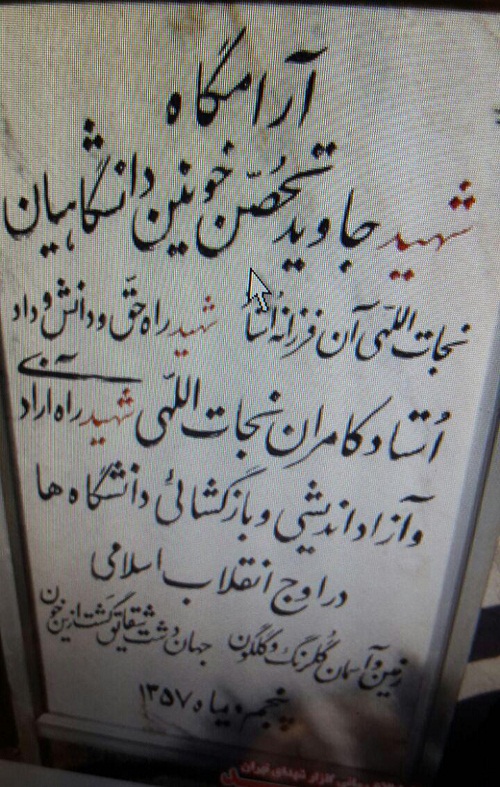 آرامگاه
شهید جاوید تحصّن خونین دانشگاهیان
نجات اللّهی آن فرزانه اُستاد شهید راه حَق و دانش و داد
اُستاد کامران نجات اللّهی شهید راه آزادی
و آزاداندیشی و بازگشائی دانشگاه ها
در اوج انقلاب اسلامی
زمین و آسمان گلرنگ و گلگون جهان دشت شقایق گشت از این خون
پنجم دیماه ۱۳۵۷
گلزار شهدای ایران